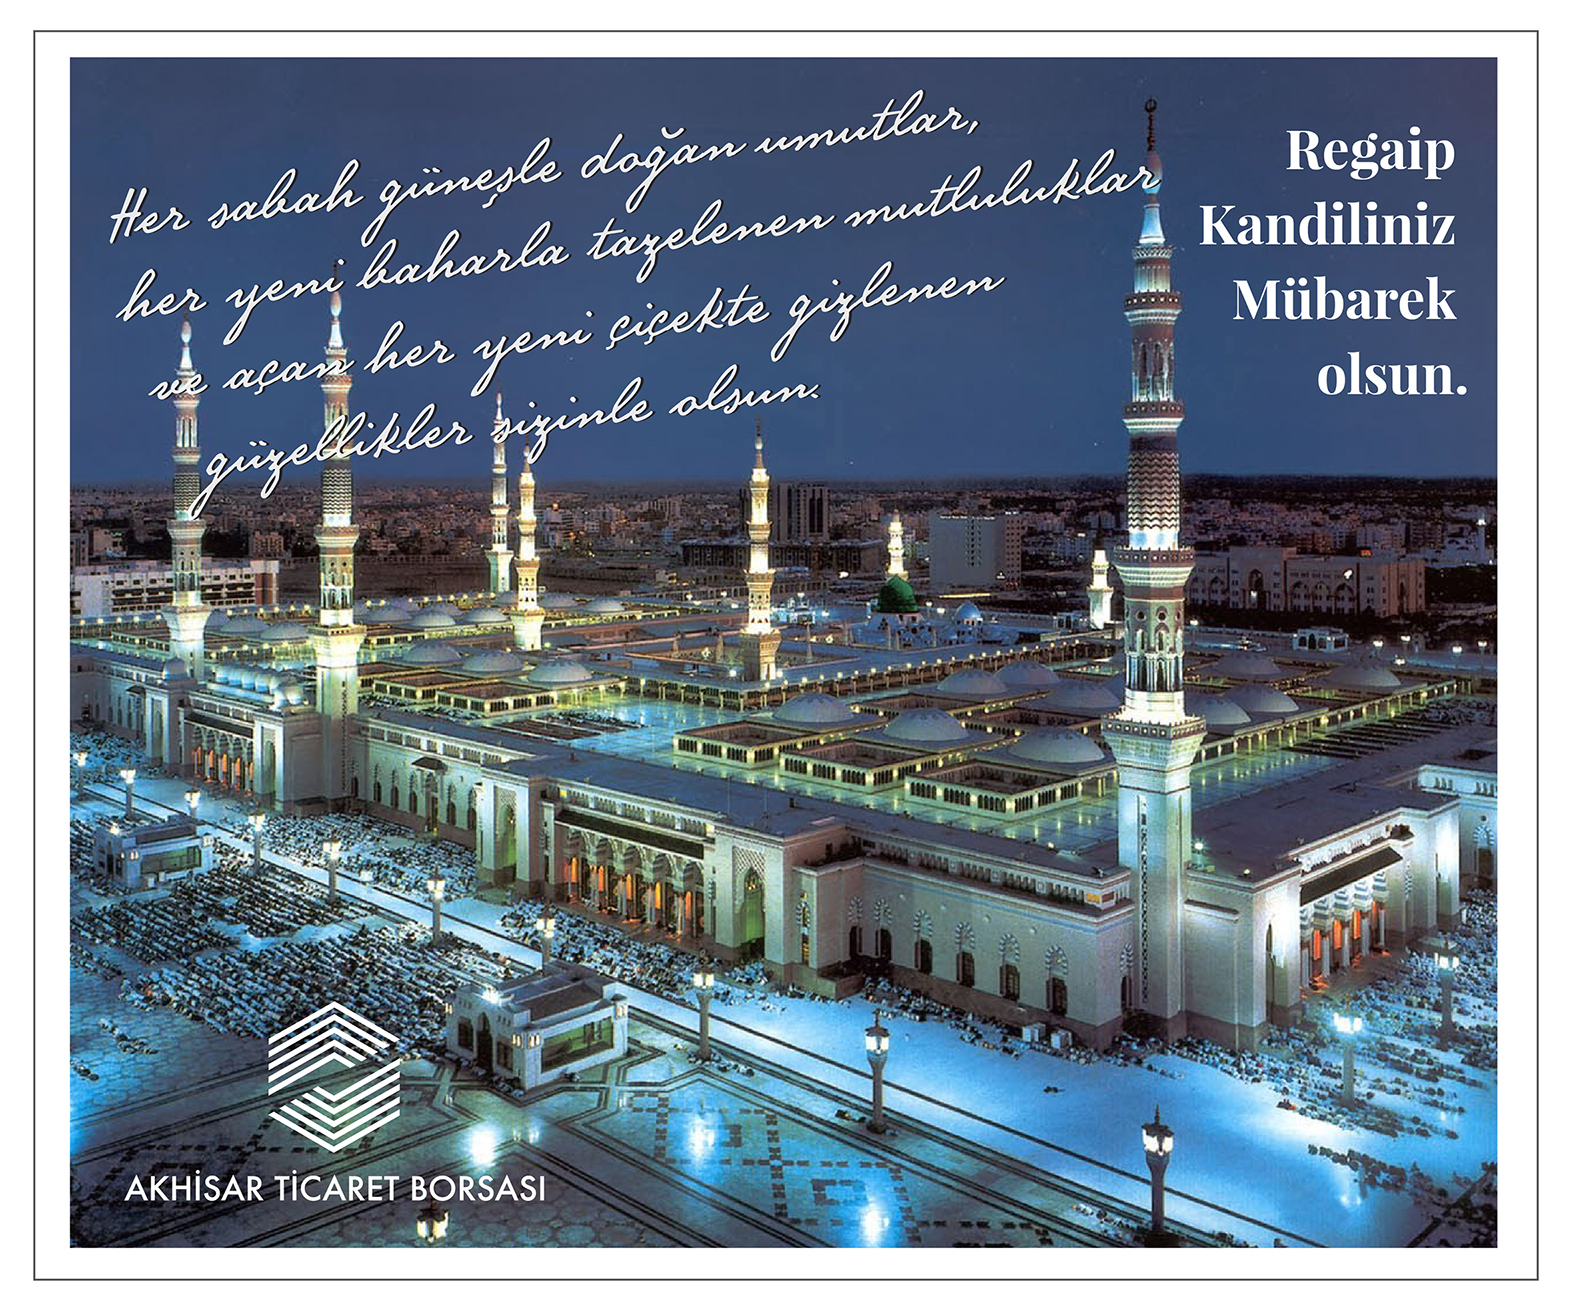 Her sabah güneşle doğan umutlar,
her yeni baharla tazelenen mutluluklar
ve açan her yeni çiçekte gizlenen
güzellikler sizinle olsun.
Regaip
Kandiliniz
Mübarek
olsun.
AKHİSAR TİCARET BORSASI